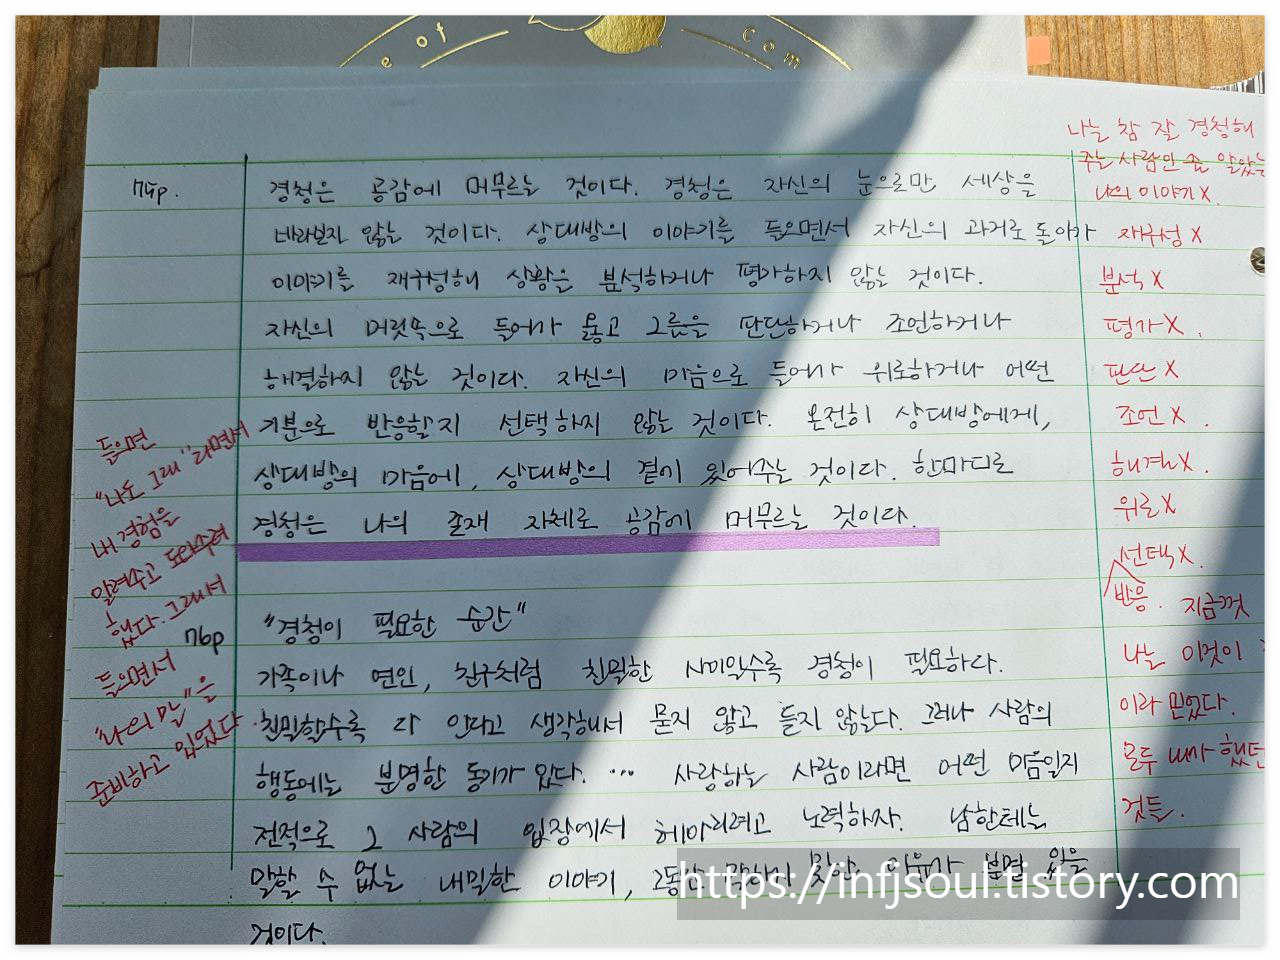 e of
com
나는 참 잘 경청해
주는 사람인 줄 알았는
나의 이야기 X.
재구성 X
분석 X
평가 X.
판단 X
조언 X.
해결 X.
위로 X
선택 X.
반응. 지금껏
나는 이것이
이라 믿었다.
모두 내가 했던
것들.
74p.
경청은 공감에 머무르는 것이다. 경청은 자신의 눈으로만 세상을
바라보지 않는 것이다. 상대방의 이야기를 들으면서 자신의 과거로 돌아가
이야기를 재구성해 상황은 분석하거나 평가하지 않는 것이다.
자신의 머릿속으로 들어가 옳고 그름을 판단하거나 조언하거나
해결하지 않는 것이다. 자신의 마음으로 들어가 위로하거나 어떤
기분으로 반응할지 선택하지 않는 것이다. 온전히 상대방에게,
상대방의 마음에, 상대방의 곁에 있어주는 것이다. 한마디로
경청은 나의 존재 자체로 공감에 머무르는 것이다.
들으면
"나도 그래" 라면서
내 경험을
알려주고 도와주려
했다. 그래서
들으면서
"나의 말"을
준비하고 있었다.
76p
"경청이 필요한 순간"
가족이나 연인, 친구처럼 친밀한 사이일수록 경청이 필요하다.
친밀할수록 다 안다고 생각해서 묻지 않고 듣지 않는다. 그러나 사람의
행동에는 분명한 동기가 있다. … 사랑하는 사람이라면 어떤 마음일지
전적으로 그 사람의 입장에서 헤아리려고 노력하자. 남한테는
말할 수 없는 내밀한 이야기, 그동안 못한 이유가 분명 있을
것이다.
https://infjsoul.tistory.com